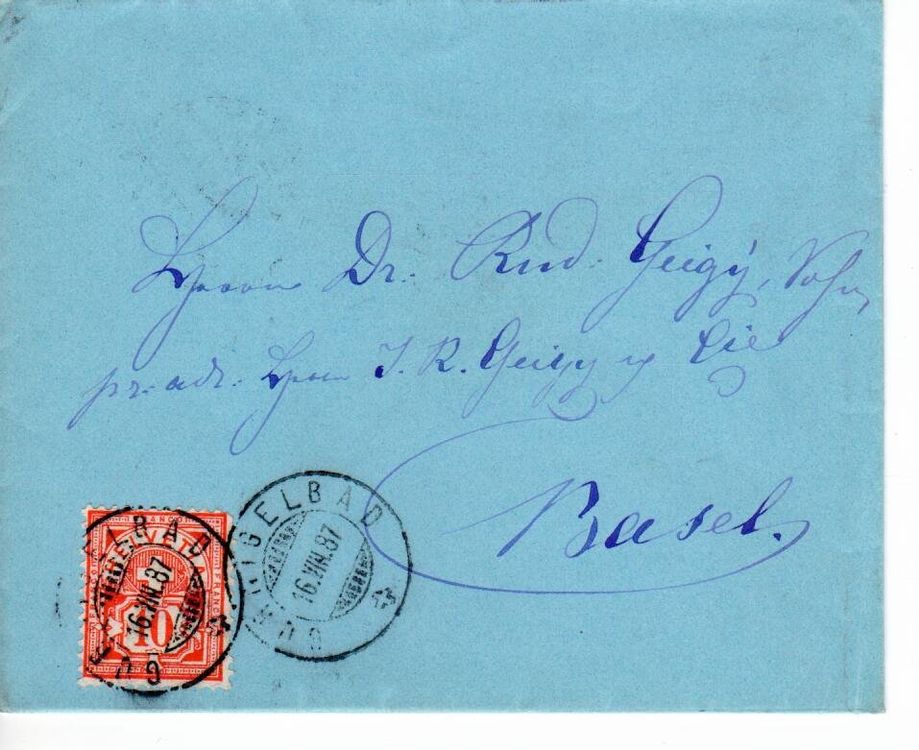 Herrn Dr. Rud. Geigy, Sohn,
pr. adr. Herrn J. R. Geigy & Cie
Basel.
GURNIGELBAD
16.VIII.87
FRANCO
HELVETIA
10
BAD
16.VIII.87
GU